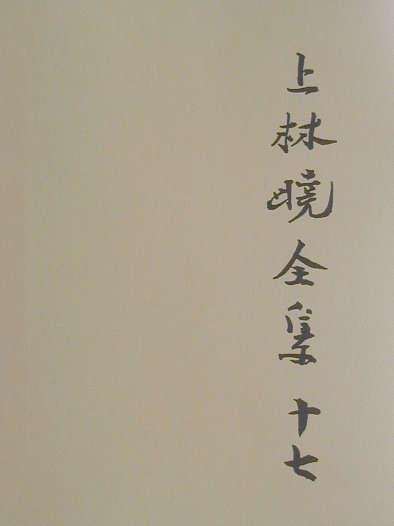 上林曉全集十七